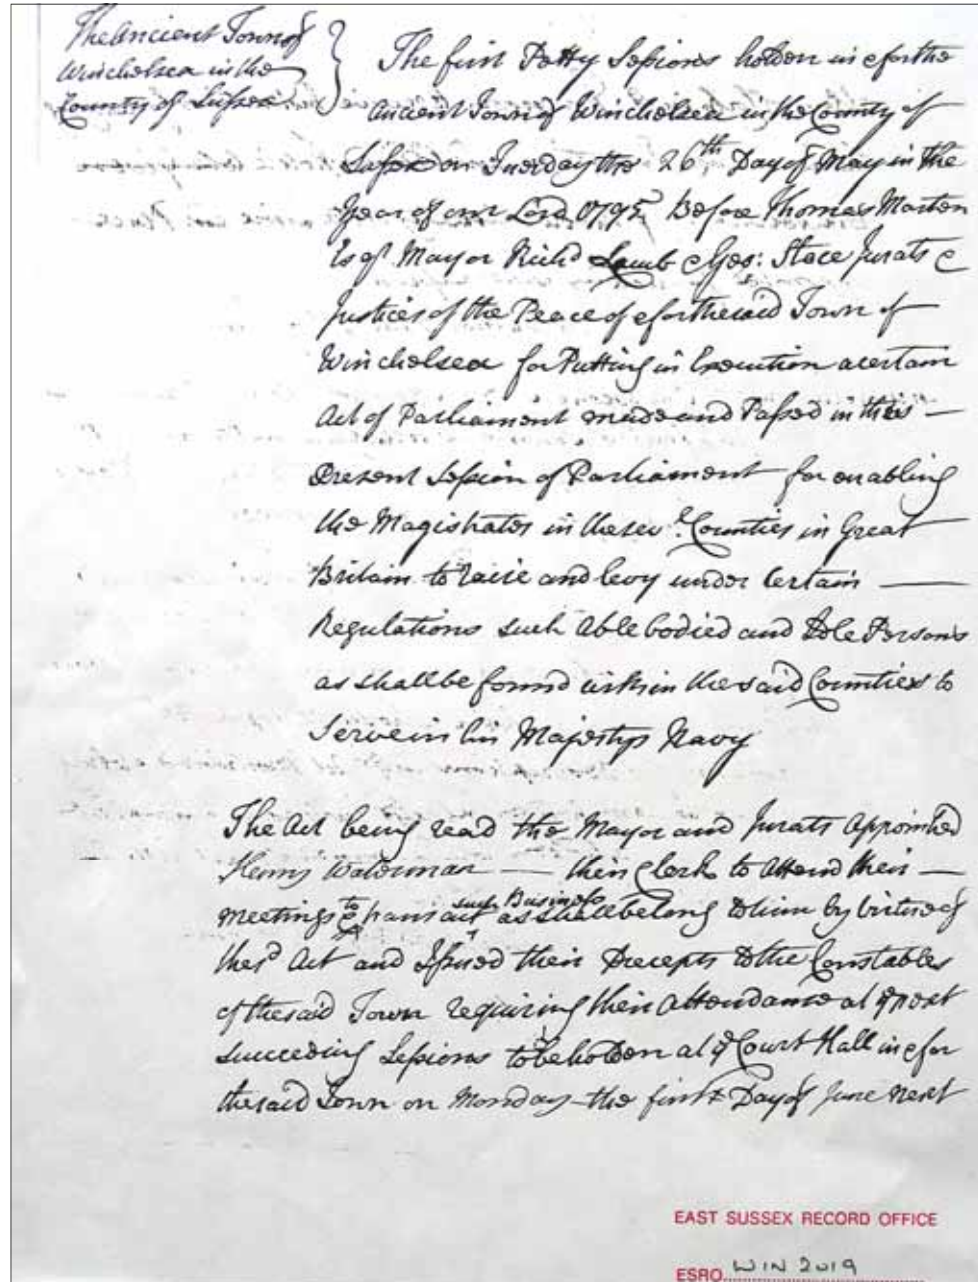 The Ancient Town of
Winchelsea in the
County of Sussex
The first Petty Sessions holden in & for the
Ancient Town of Winchelsea in the County of
Sussex on Tuesday the 26th Day of May in the
Year of our Lord 1795 Before Thomas Marten
Esqr Mayor Richd Lamb & Geo: Stace Jurats &
Justices of the Peace of & for the said Town of
Winchelsea for Putting in Execution a certain
Act of Parliament made and Passed in this —
Present Session of Parliament for enabling
the Magistrates in the sevl. Counties in Great
Britain to raise and levy under Certain —
Regulations such Able bodied and Idle Persons
as shall be found within the said Counties to
Serve in his Majestys Navy
The Act being read the Mayor and Jurats Appointed
Henry Waterman — their Clerk to Attend their —
Meetings & to transact such Business as shall belong to him by virtue of
the sd Act and Issued their Precepts to the Constables
of the said Town requiring their Attendance at ye next
succeeding Sessions to be holden at ye Court Hall in & for
the said Town on Monday the first Day of June next
EAST SUSSEX RECORD OFFICE
ESRO WIN 2019